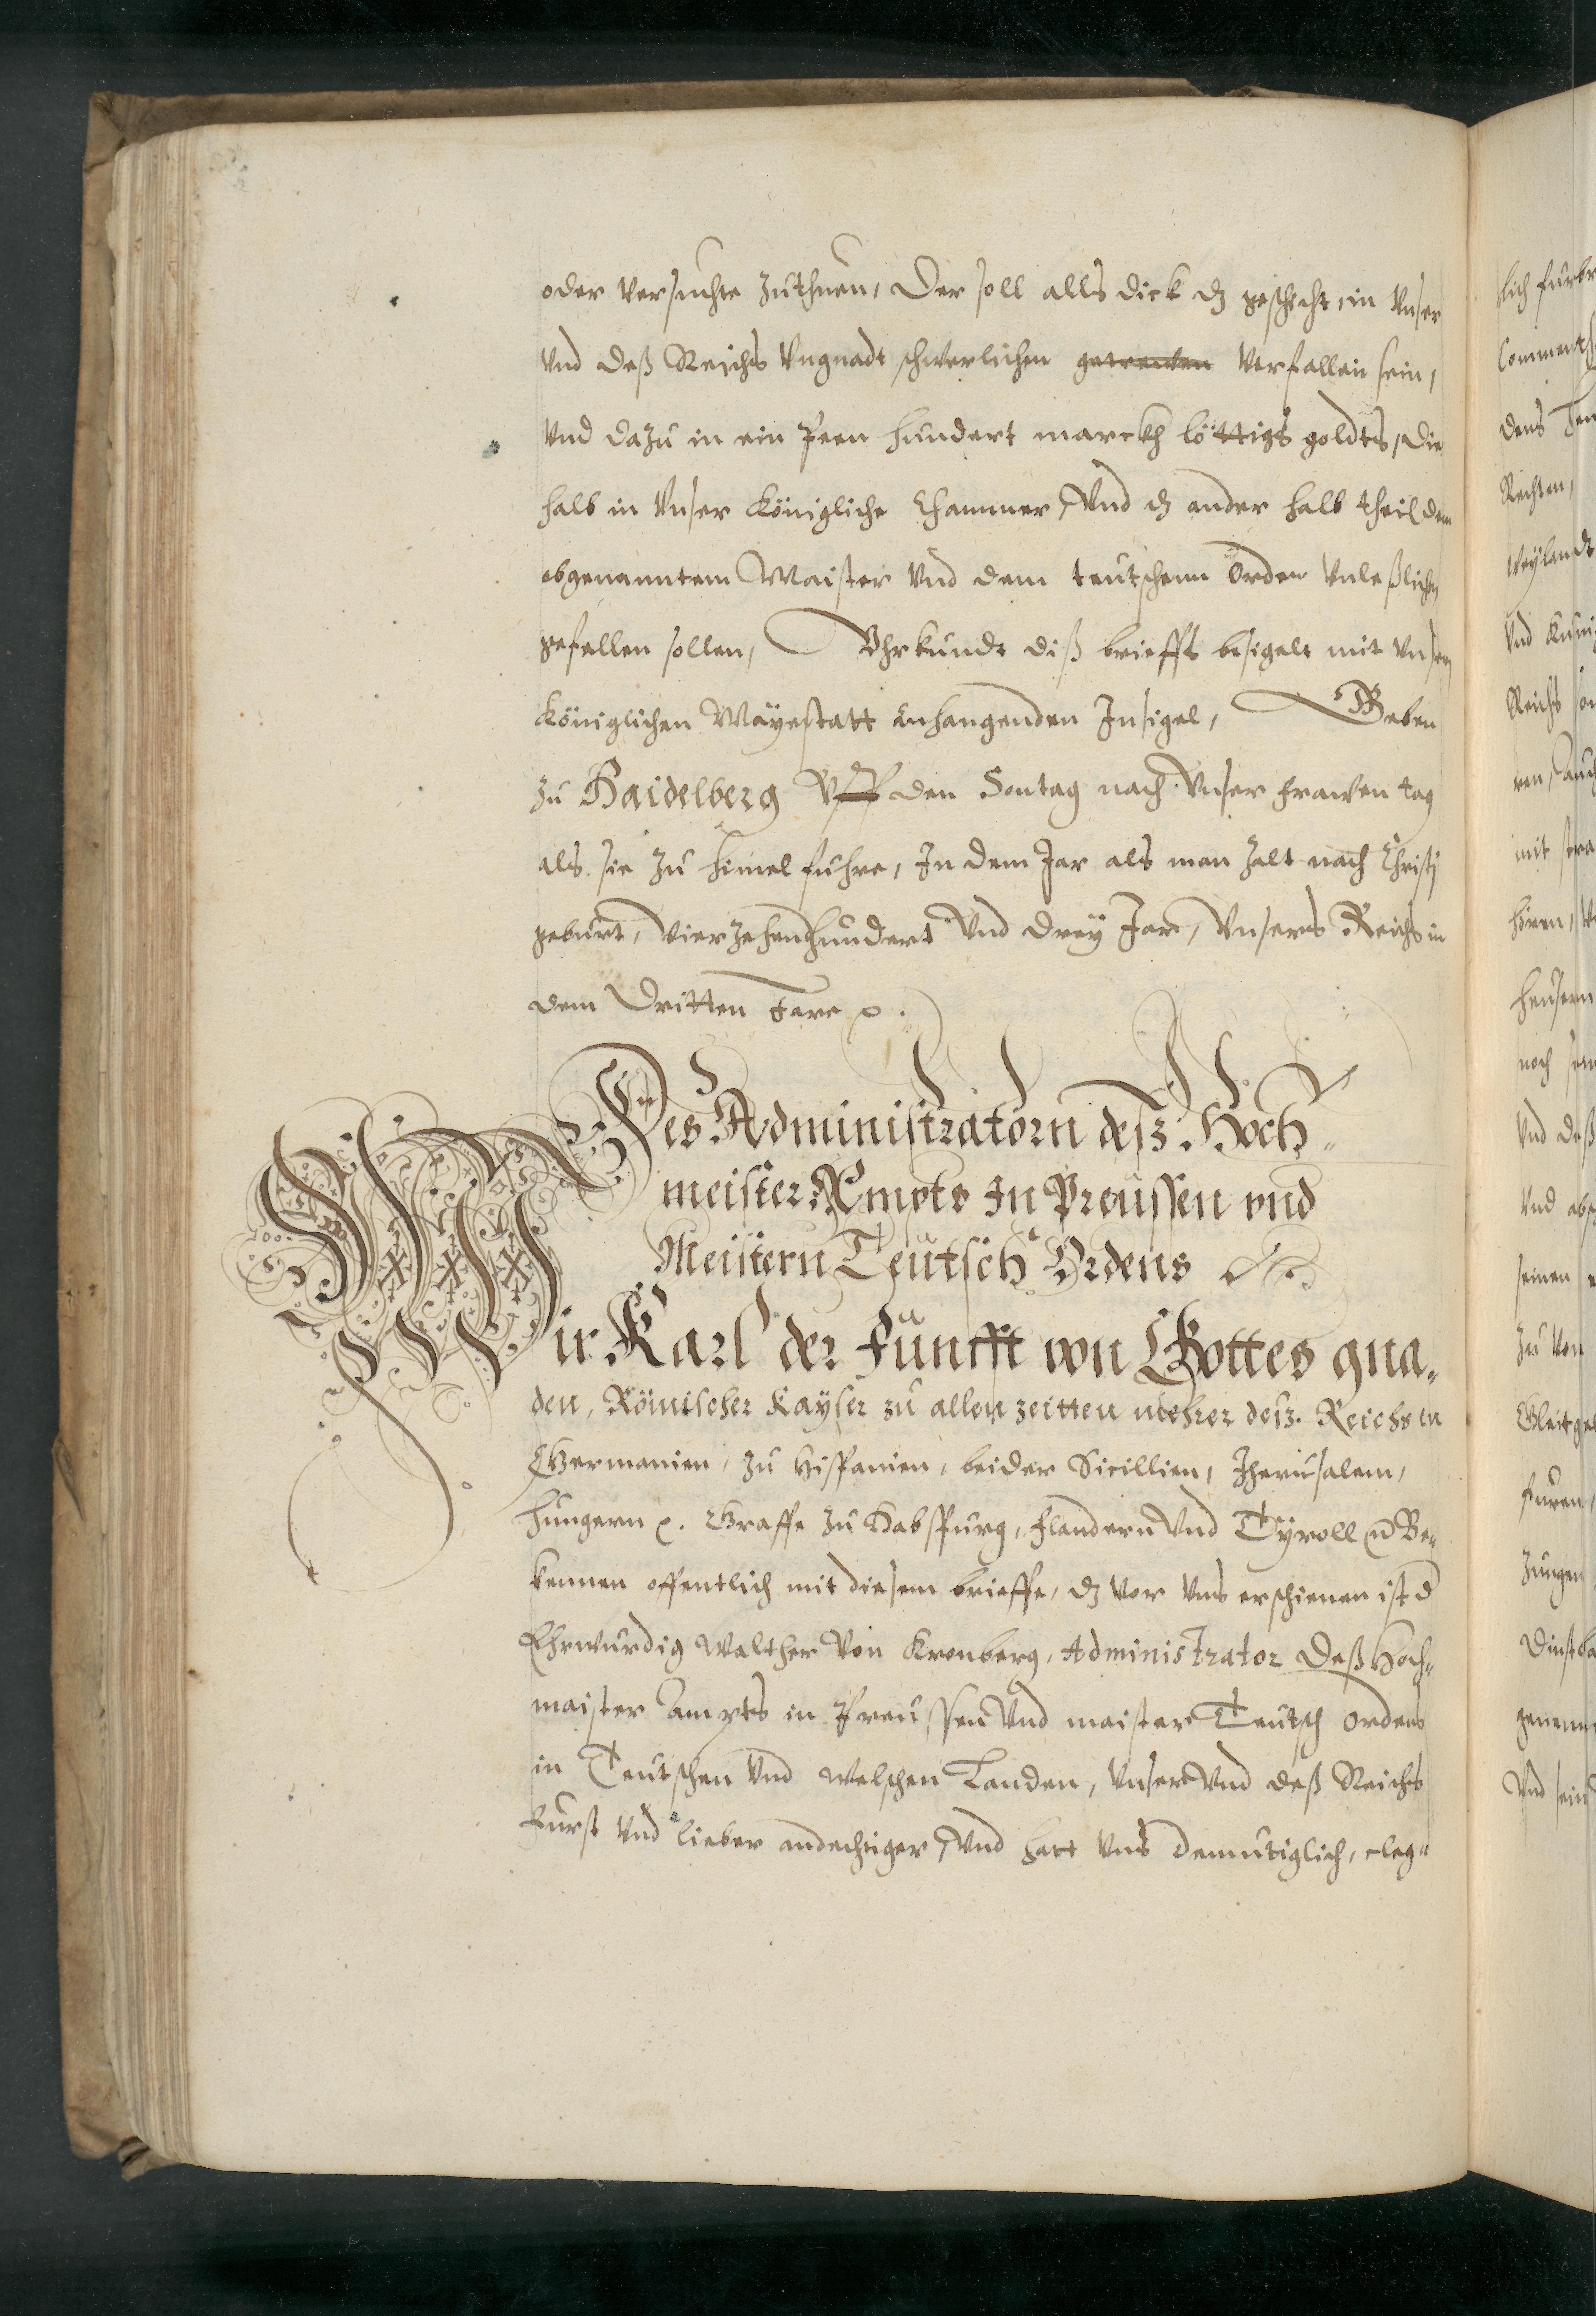 oder versuchte zuthuen, Der soll alls dick dz geschicht, in vnser
vnd deß Reichs vngnadt schwerlichen getrewen verfallen sein,
vnd dazu in ein Peen hundert marckh löttigs goldts, die
halb in vnser königliche Chammer, vnd dz ander halb theil dem
obgenanntem Maister vnd dem teutschenn Orden vnleßlichen
gefallen sollen, Vhrkundt diß brieffs besigelt mit vnserm
königlichen Mayestatt anhangenden Insigel, Geben
zu Haidelberg vff den Sontag nach vnser frawen tag
als sie zu himel fuhre, In dem Jar als man zalt nach Christj
geburt, vierzehenhundert vnd drey Jar, vnsers Reichs in
dem Dritten Jare
Des Administratorn desz Hoch-
meister Ampts In Preussen vnd
Meistern Teutsch Ordens
Wir Karl der Funfft von Gottes gna-
den, Römischer Kayser zu allen zeitten mehrer desz Reichs in
Germanien, zu Hispanien, beider Sicillien, Jherusalem,
Hungern Graffe zu Habspurg, Flandern vnd Tyroll Be-
kennen offentlich mit diesem brieffe, dz vor vns erschienen ist d
Ehrwurdig Walther von Kronberg, Administrator deß Hoch-
maister Ampts in Preussen vnd maister Teutsch ordens
in Teutschen vnd welschen Landen, vnser vnd deß Reichs
Furst vnd lieber andechtiger, vnd hatt vns demutiglich, cleg-